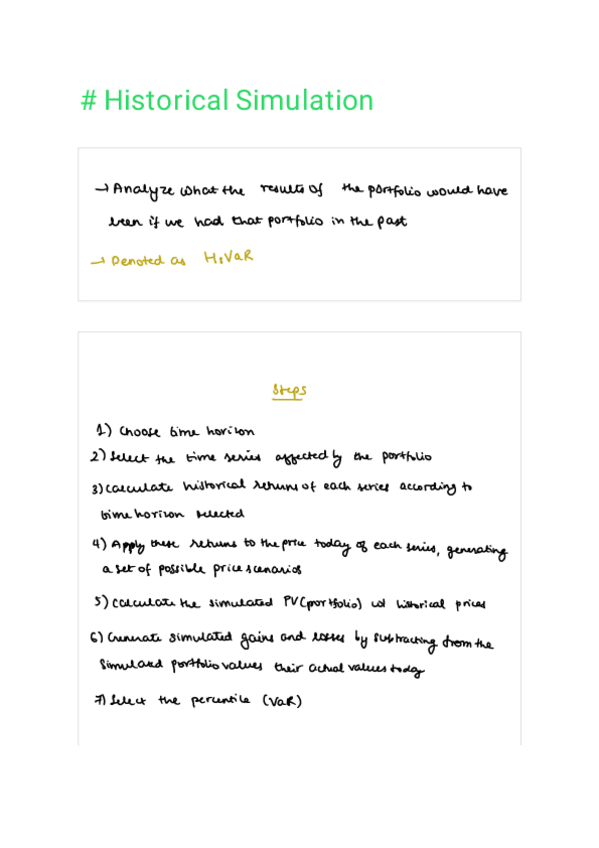 # Historical Simulation
→ Analyze what the results of the portfolio would have
been if we had that portfolio in the past
→ Denoted as HsVaR
Steps
1) Choose time horizon
2) Select the time series affected by the portfolio
3) Calculate historical returns of each series according to
time horizon selected
4) Apply these returns to the price today of each series, generating
a set of possible price scenarios
5) Calculate the simulated PV (portfolio) w/ historical prices
6) Generate simulated gains and losses by subtracting from the
simulated portfolio values their actual values today
7) Select the percentile (VaR)